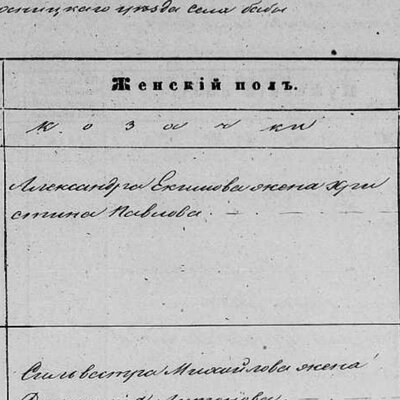 сницкаго уѣзда села бабы
Женскій полъ.
козачки
Александра Екимова жена Хри
стина Павлова
Сильвестра Михайлова жена